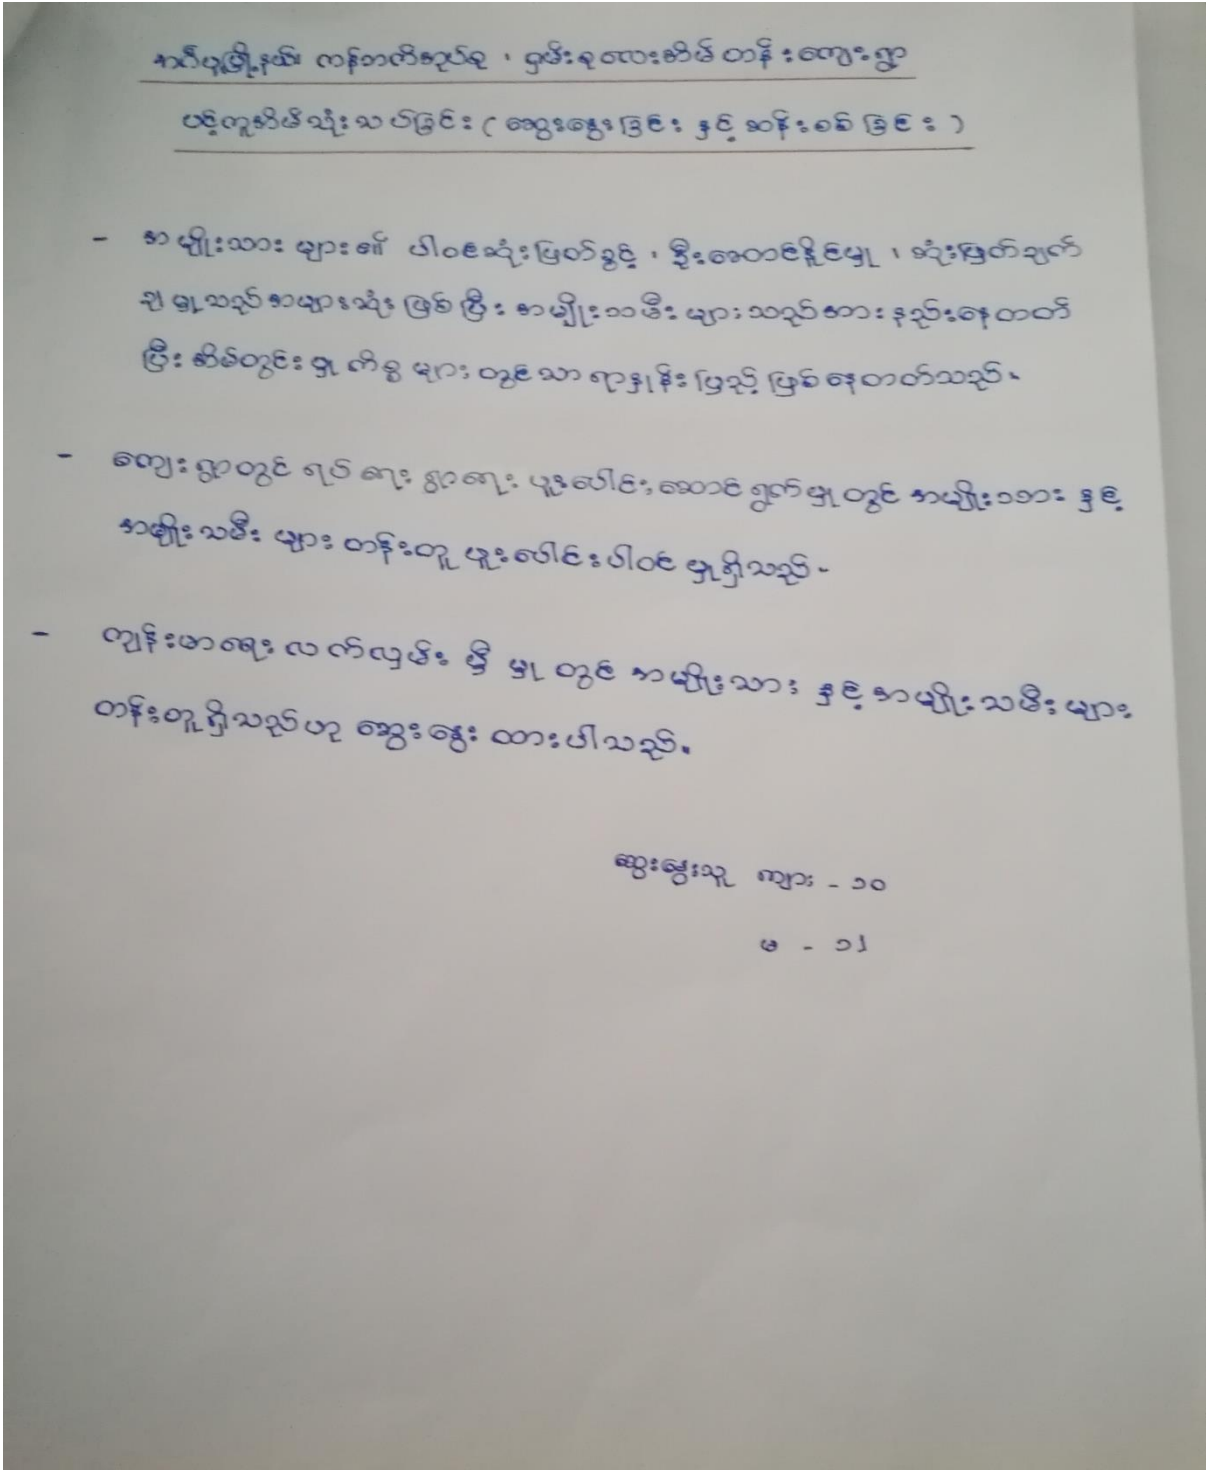 ကန်ဘက်အုပ်စု ၊ ရှမ်းစုလေးအိမ်တန်းကျေးရွာ
ပင့်ကူအိမ်သုံးသပ်ခြင်း ( ဆွေးနွေးခြင်း နှင့် ဆန်းစစ်ခြင်း )
- အမျိုးသားများ၏ ပါဝင်ဆုံးဖြတ်ခွင့် ၊ ဦးဆောင်နိုင်မှု ၊ ဆုံးဖြတ်ချက်
ချမှုသည်အများဆုံးဖြစ်ပြီး အမျိုးသမီးများသည်အားနည်းနေတတ်
ပြီး အိမ်တွင်းမှုကိစ္စများတွင်သာ ရာနှုန်းပြည့်ဖြစ်နေတတ်သည်။
- ကျေးရွာတွင် ရပ်ရေးရွာရေး ပူးပေါင်းဆောင်ရွက်မှုတွင် အမျိုးသား နှင့်
အမျိုးသမီးများ တန်းတူ ပူးပေါင်းပါဝင်မှုရှိသည်။
- ကျန်းမာရေးလက်လှမ်းမှီမှုတွင် အမျိုးသား နှင့် အမျိုးသမီးများ
တန်းတူရှိသည်ဟု ဆွေးနွေးထားပါသည်။
ဆွေးနွေးသူ ကျား - ၁၀
မ - ၁၂